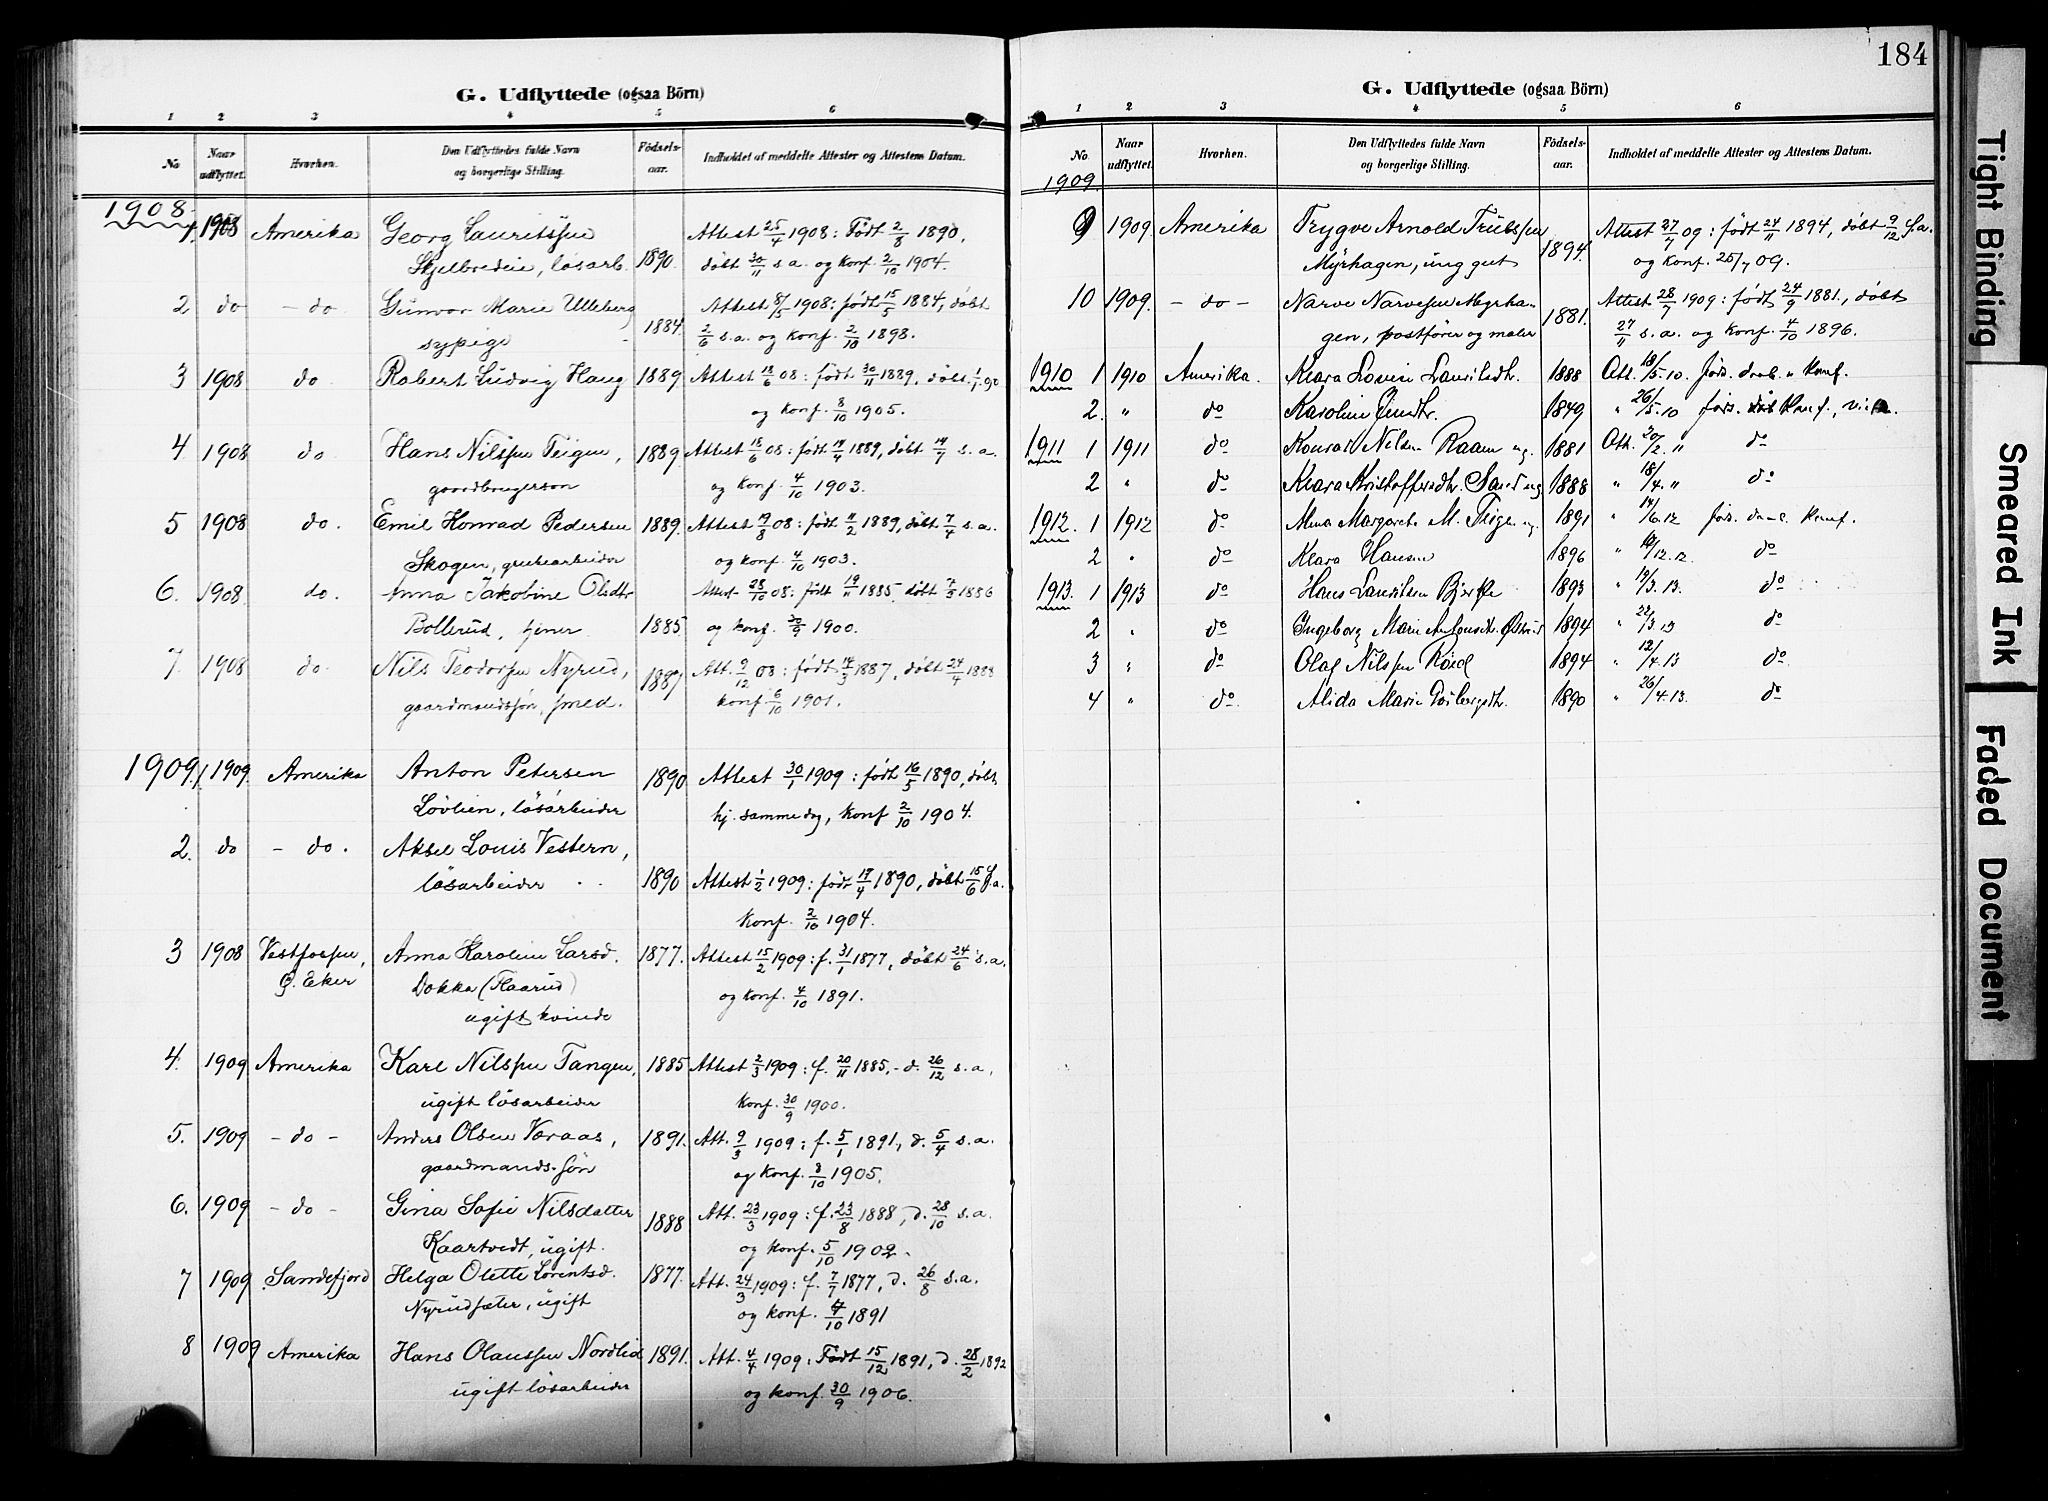 G. Udflyttede (ogsaa Börn)
1 2 3 4 5 6
No. Naar udflyttet. Hvorhen. Den Udflyttedes fulde Navn og borgerlige Stilling. Födsels-aar. Indholdet af meddelte Attester og Attestens Datum.
1908.
1. 1908 Amerika Georg Lauritssen Attest 25/4 1908: Født 2/8 1890,
Skjelbredeie, løsarb. 1890. døbt 30/11 s.a. og konf. 2/10 1904.
2 do - do Gunvor Marie Ulleberg Attest 8/5 1908: født 15/5 1884, døbt
sypige 1884. 2/6 s.a. og konf. 2/10 1898.
3 1908 do. Robert Ludvig Haug 1889 Attest 18/6 08: født 30/11 1889, døbt 1/1 90
og konf. 8/10 1905.
4 1908 do Hans Nilssen Teigen, 1889 Attest 18/6 08: født 14/4 1889, døbt 14/7 s.a.
gaardbrugerson og konf. 4/10 1903.
5 1908 do. Emil Konrad Pedersen 1889. Attest 19/8 08: født 11/2 1889, døbt 7/4 s.a.
Skogen, grubearbeider og konf. 4/10 1903.
6. 1908 do. Anna Jakobine Olsdtr Attest 28/10 08: født 19/11 1885, døbt 7/3 1886
Bollerud, tjener 1885 og konf. 30/9 1900.
7. 1908 do. Nils Teodorsen Nyrud, 1887 Att. 9/12 08: født 14/3 1887, døbt 24/4 1888
gaardmandssøn, smed. konf. 6/10 1901.
1909. 1 1909. Amerika Anton Petersen 1890 Attest 30/1 1909: født 16/5 1890, døbt
Løvlien, løsarbeider hj. samme dag, konf 2/10 1904.
2. do - do. Aksel Louis Vestern,
løsarbeider 1890 Attest 1/2 1909: født 17/4 1890, døbt 15/6 s.a.
konf. 2/10 1904.
3 1908 Vestfossen, Anna Karoline Larsd. 1877. Attest 15/2 1909: f. 31/1 1877, døbt 24/6 s.a.
Ø. Eker Dokka (Flaarud) og konf. 4/10 1891.
ugift kvinde
4. 1909 Amerika Karl Nilssen Tangen, 1885 Attest 2/3 1909: f. 20/11 1885, - d. 26/12 s.a.
ugift løsarbeider konf. 30/9 1900.
5. 1909 - do - Anders Olsen Voraas, 1891. Att. 9/3 1909: f. 5/1 1891, d. 5/4 s.a.
gaardmands-søn og konf. 8/10 1905.
6. 1909 - do - Gina Sofie Nilsdatter 1888 Att. 23/3 1909: f. 23/8 1888, d. 28/10 s.a.
Kaartvedt, ugift. og konf. 5/10 1902.
7 1909 Sandefjord Helga Olette Lorentsd. 1877. Att. 24/3 1909: f. 7/7 1877, d. 26/8 s.a.
Nyrudsæter, ugift og konf. 4/10 1891
8 1909 Amerika Hans Olaussen Nordlid 1891. Att. 4/4 1909: Født 15/12 1891, d. 28/2 1892
ugift løsarbeider og konf. 30/9 1906.
184
G. Udflyttede (ogsaa Börn)
1 2 3 4 5 6
No. Naar udflyttet. Hvorhen. Den Udflyttedes fulde Navn og borgerlige Stilling. Födsels-aar. Indholdet af meddelte Attester og Attestens Datum.
1909.
9 1909. Amerika Trygve Arnold Trulssen 1894. Attest 27/7 09: født 24/11 1894, døbt 9/12 s.a.
Myrhagen, ung gut og konf. 25/7 09.
10 1909. - do - Narve Narvesen Myrha- 1881. Attest 28/7 1909: født 24/9 1881., døbt
gen, postfører og maler 27/11 s.a. og konf. 4/10 1896.
1910 1 1910 Amerika. Klara Lovise Lauritsdtr. 1888 Att. 18/5. 10. føds. daab. " konf.
2. " do Karoline 1849 " 26/5. 10 føds. konf.,
1911 1 1911 do Konrad Nilsen Raaen ug. 1881 Att. 20/2. " do
2 " do Klara Kristoffersdtr. Sand ug 1888 " 18/4. " do
1912. 1 1912 do Alma Margarete M. Teige ug. 1891 " 14/6. 12 føds. daab. konf.
2 " do Klara Hansen 1896 " 12. 12. do
1913. 1 1913 do Hans Lauritsen Bjerke 1893 " 3. 13. do
2 " do Ingeborg Marie Antonsdtr. 1894 " 22/3 13 do
3 " do Olaf Nilssen Røed 1894 " 12/4. 13 do
4 " do. Alida Marie 1890 " 26/4. 13. do
Tight Binding
Smeared Ink
Faded Document